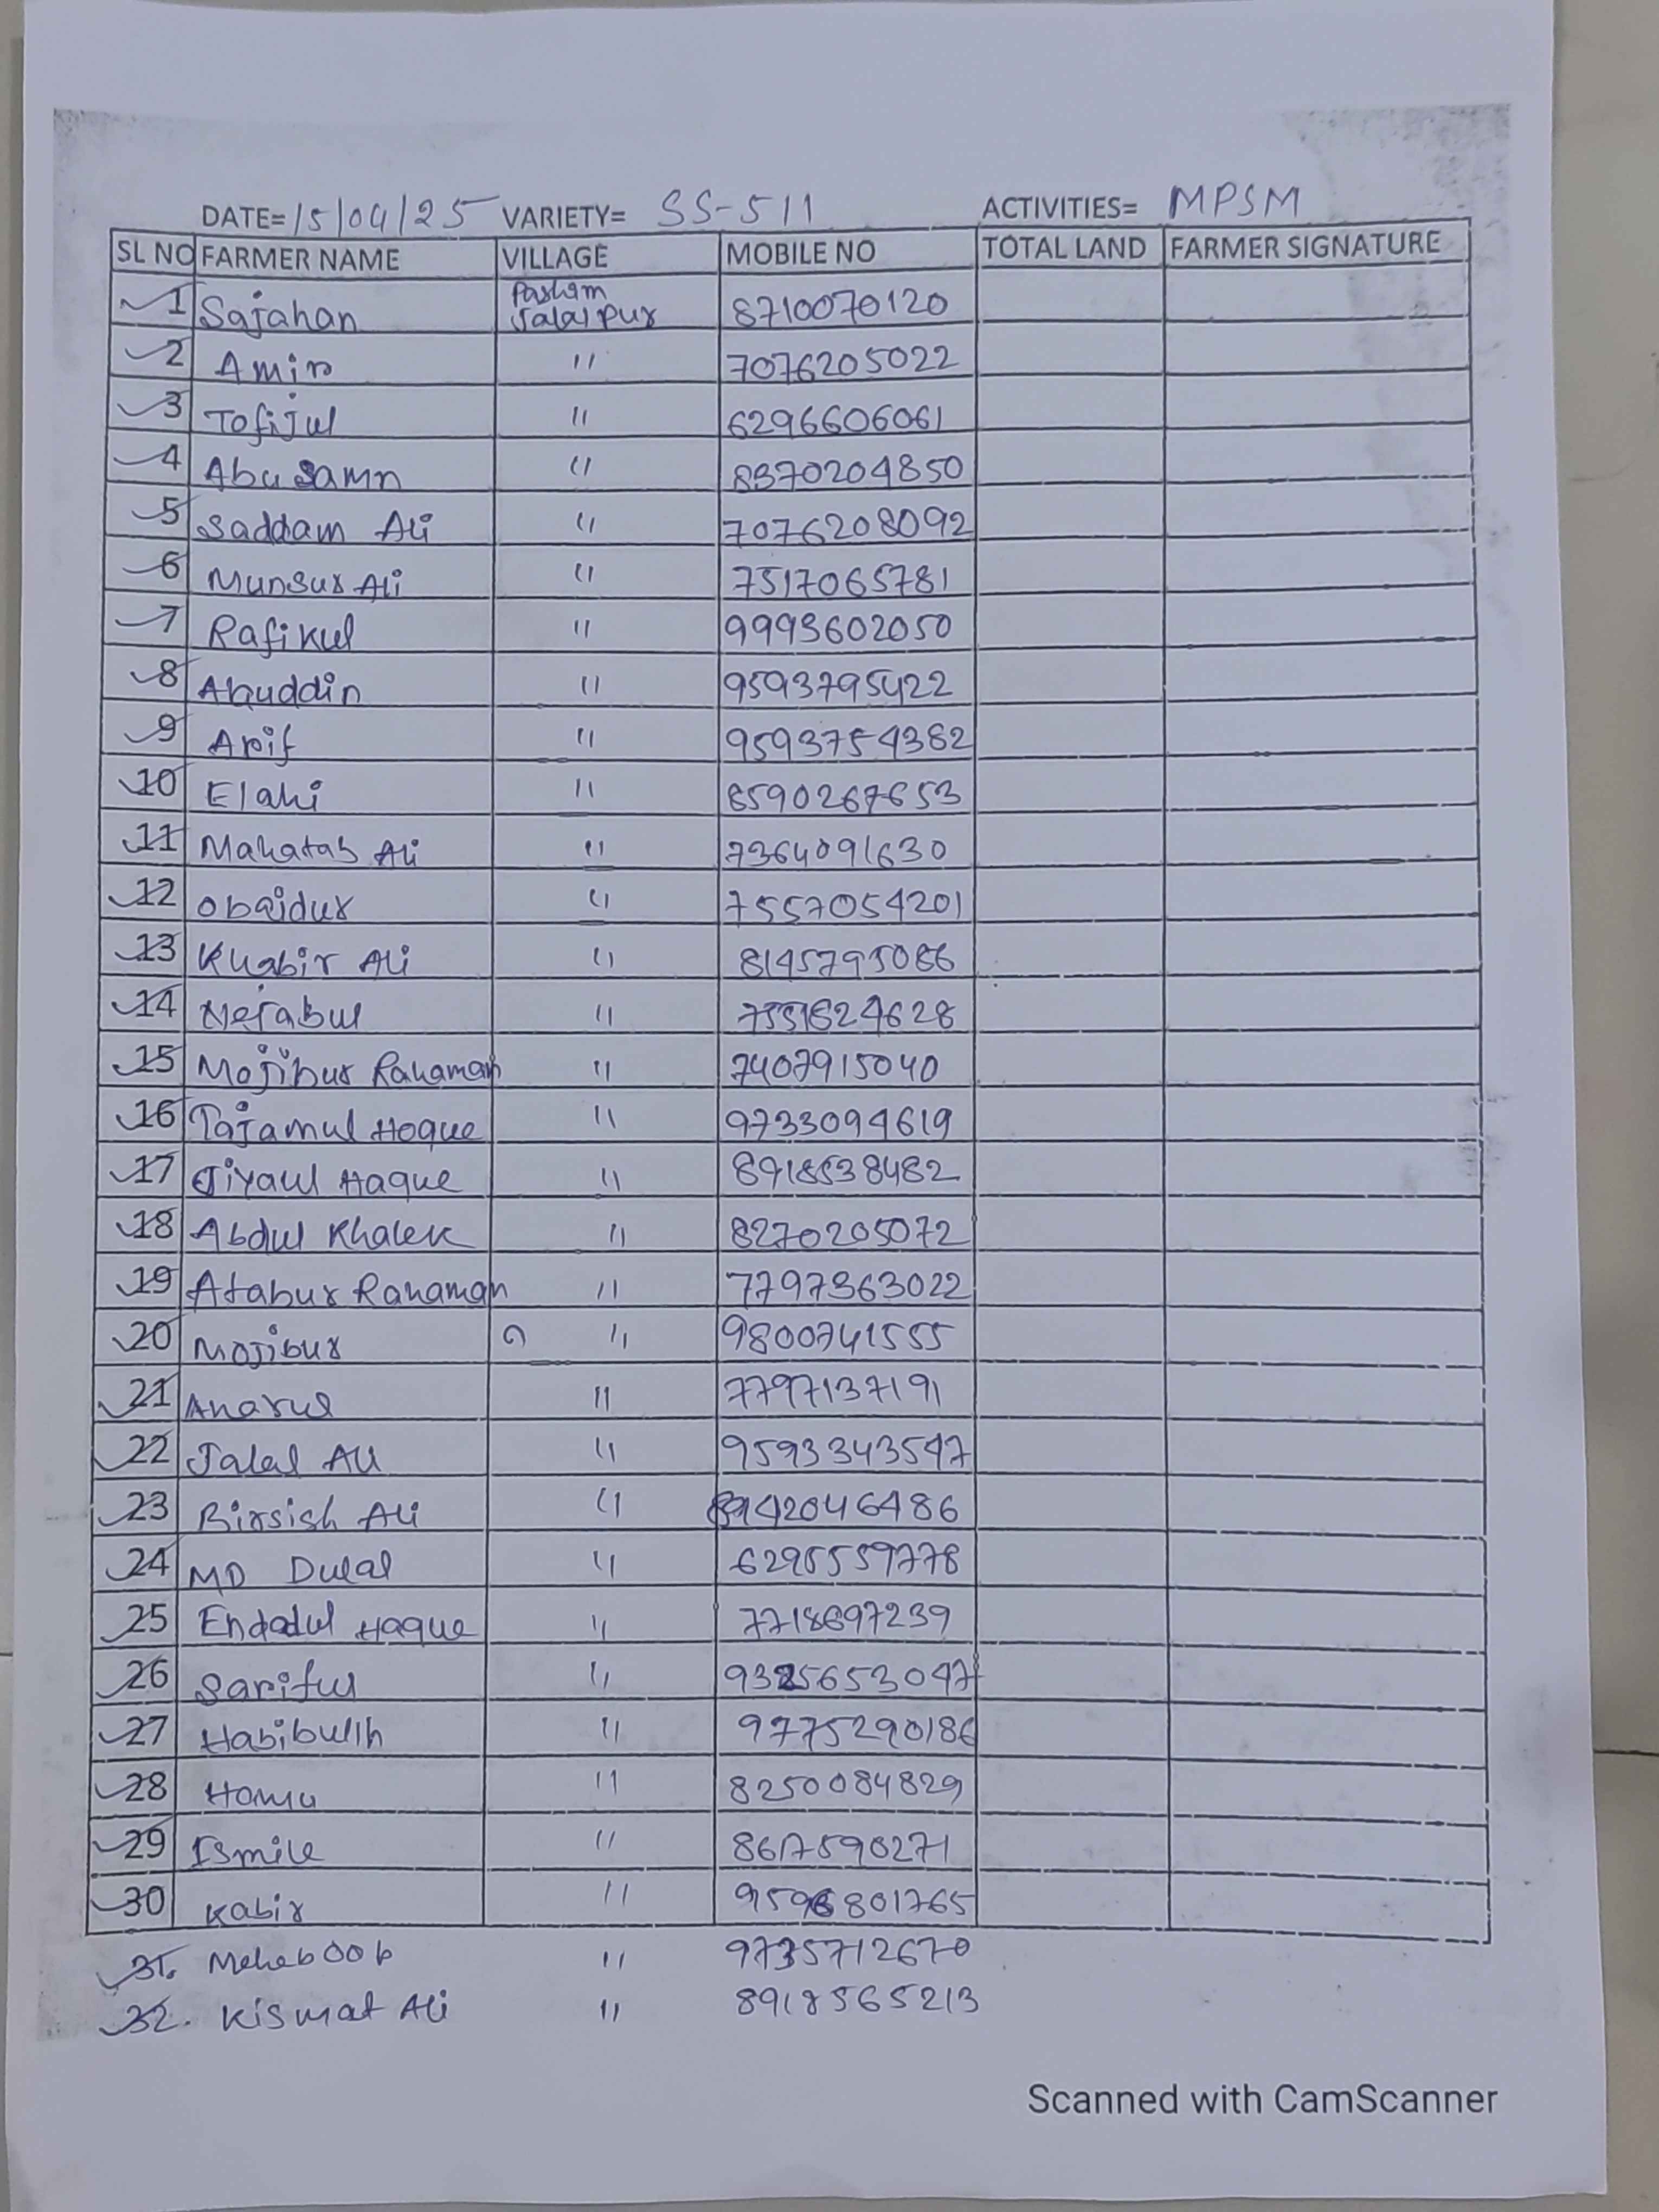 DATE= 15/04/25 VARIETY= SS-511 ACTIVITIES= MPSM
SL NO FARMER NAME VILLAGE MOBILE NO TOTAL LAND FARMER SIGNATURE
1 Sajahan Pashim Jalalpur 8710070120
2 Amin " 7076205022
3 Tofijul " 6296606061
4 Abu Samn " 8370204850
5 Saddam Ali " 7076208092
6 Munsur Ali " 7517065781
7 Rafikul " 9993602050
8 Alauddin " 9593795422
9 Arif " 9593754382
10 Elahi " 8590267653
11 Mahatab Ali " 7364091630
12 Obaidur " 7557054201
13 Khabir Ali " 8145795086
14 Nejabul "
15 Mojibur Rahaman " 7407915040
16 Tajamul Hoque " 9733094619
17 Jiyaul Haque " 8918538482
18 Abdul Khalek " 8270205072
19 Atabur Rahaman " 7797363022
20 Mojibur " 9800741555
21 Anarul " 7797137191
22 Jalal Ali " 9593343547
23 Birsish Ali " 8942046486
24 MD Dulal " 6295559778
25 Endadul Haque " 7718697239
26 Sariful " 9325653047
27 Habibullh " 9775290186
28 Hamu " 8250084829
29 Ismile " 8617590271
30 Kabir "
31. Meheboob " 9735712670
32. Kismat Ali " 8918565213
Scanned with CamScanner